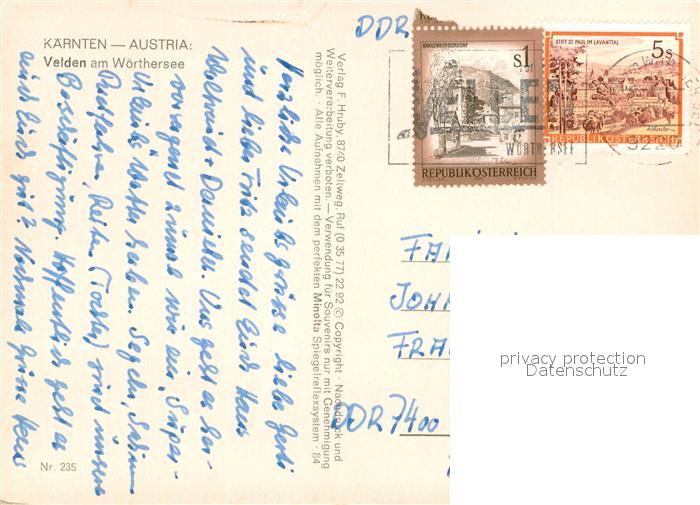 KÄRNTEN — AUSTRIA:
Velden am Wörthersee
Herzliche Urlaubsgrüsse liebe Gerti
und lieber Fritz sendet Euch Hans
Uns geht es her-
vorragend zumal wir ein Super-
Urlaubs Wetter haben. Segeln, Schwimm
Radfahren, Reiten (Tochter) sind unsere
Beschäftigung. Hoffentlich geht es
auch Euch gut? Nochmals Grüsse Hans
Nr. 235
Verlag F. Hruby, 8740 Zeltweg, Ruf (0 35 77) 22 92 © Copyright · Nachdruck und
Weiterverarbeitung verboten. — Verwendung für Souvenirs nur mit Genehmigung
möglich. · Alle Aufnahmen mit dem perfekten Minolta Spiegelreflexsystem · 84
DDR
KAHLENBERGERDORF
S1
REPUBLIK ÖSTERREICH
STIFT ST. PAUL IM LAVANTTAL
5s
REPUBLIK ÖSTERREICH
WÖRTHERSEE
JOH
FRA
DDR 7400
privacy protection
Datenschutz